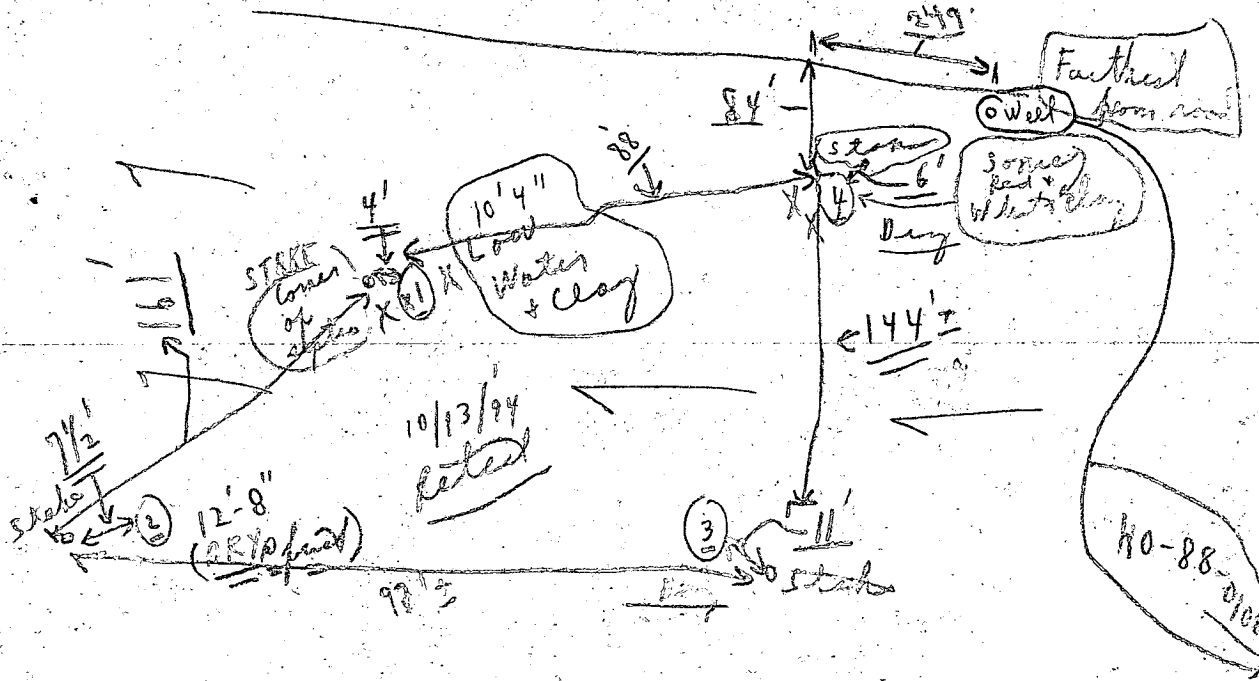 249'
Farthest
from road
Well
84'
88'
Stake
6'
4
Some
Red +
White Clay
Dry
4'
10' 4"
Water
+ Clay
STAKE
corner
of
septic
1
161'
144' ±
10/13/94
Retest
7 1/2'
Stake
2
12'-8"
3
11'
Stake
98' ±
Dry
HO-88-0108